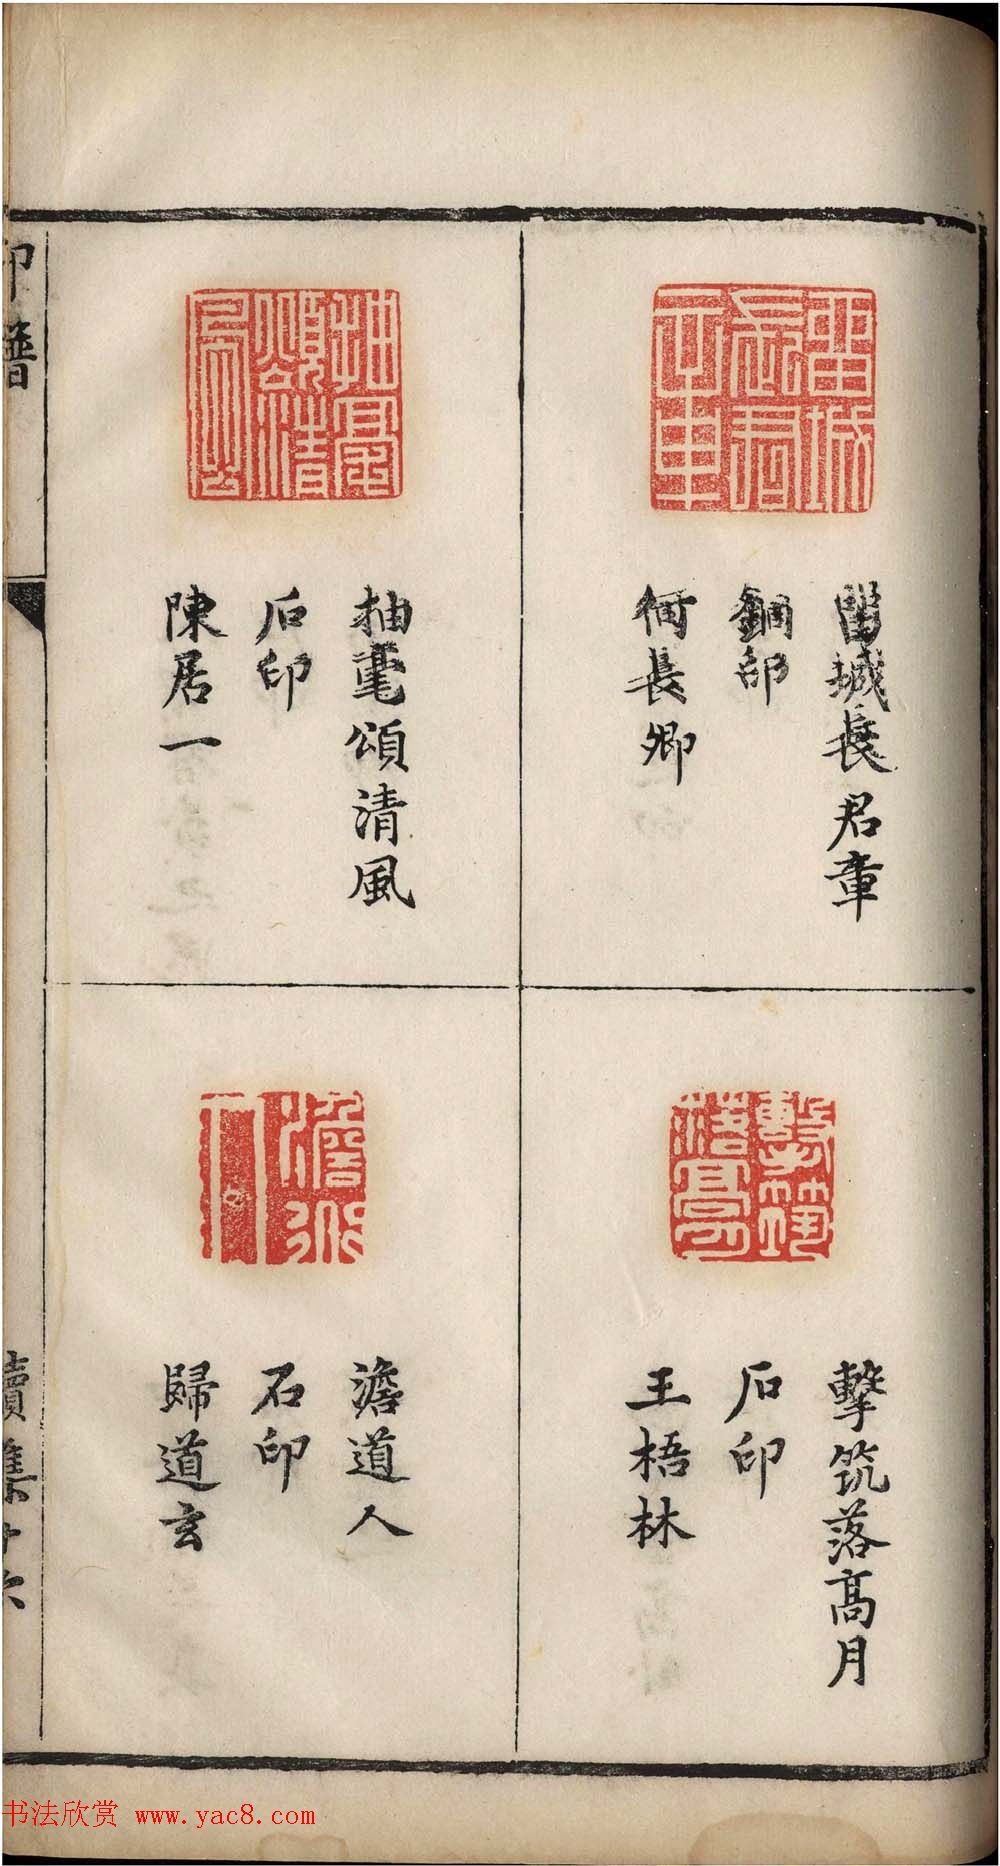 留城長君章
銅印
何長卿
擊筑落高月
石印
王梧林
抽毫頌清風
石印
陳居一
澹道人
石印
歸道玄
印譜
續集十六
书法欣赏 www.yac8.com